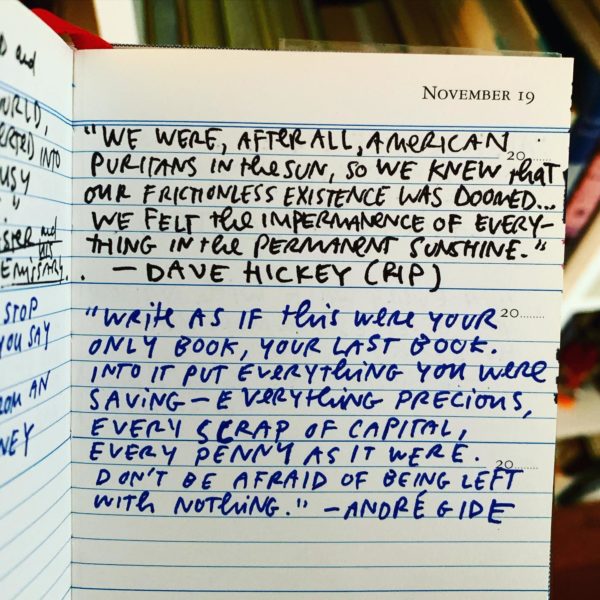 D and
WORLD,
INTO
USY
"
ISTER and
his
EMISSARY.
STOP
YOU SAY
FROM AN
NEY
NOVEMBER 19
"WE WERE, AFTER ALL, AMERICAN
20......
PURITANS IN the SUN, SO WE KNEW that
OUR FRICTIONLESS EXISTENCE WAS DOOMED...
WE FELT the IMPERMANENCE OF EVERY-
THING IN the PERMANENT SUNSHINE."
— DAVE HICKEY (RIP)
"WRITE AS IF this WERE YOUR
20......
ONLY BOOK, YOUR LAST BOOK.
INTO IT PUT EVERYTHING YOU WERE
SAVING — EVERYTHING PRECIOUS,
EVERY SCRAP OF CAPITAL,
EVERY PENNY AS IT WERE.
20......
DON'T BE AFRAID OF BEING LEFT
WITH NOTHING." — ANDRÉ GIDE